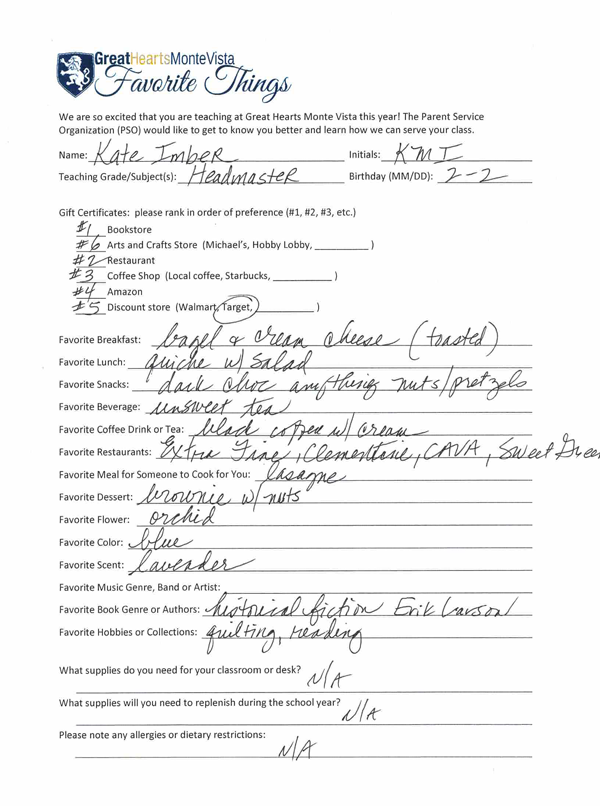 GreatHearts MonteVista
Favorite Things
We are so excited that you are teaching at Great Hearts Monte Vista this year! The Parent Service
Organization (PSO) would like to get to know you better and learn how we can serve your class.
Name: Kate Imber Initials: KMI
Teaching Grade/Subject(s): Headmaster Birthday (MM/DD): 2-2
Gift Certificates: please rank in order of preference (#1, #2, #3, etc.)
#1 Bookstore
#6 Arts and Crafts Store (Michael's, Hobby Lobby, __________ )
#2 Restaurant
#3 Coffee Shop (Local coffee, Starbucks, __________ )
#4 Amazon
#5 Discount store (Walmart, Target, __________ )
Favorite Breakfast: bagel & cream cheese (toasted)
Favorite Lunch: quiche w/ salad
Favorite Snacks: dark choc anything nuts/pretzels
Favorite Beverage: unsweet tea
Favorite Coffee Drink or Tea: black coffee w/ cream
Favorite Restaurants: Extra Fine, Clementine, CAVA, Sweet Green
Favorite Meal for Someone to Cook for You: lasagne
Favorite Dessert: brownie w/ nuts
Favorite Flower: orchid
Favorite Color: blue
Favorite Scent: lavender
Favorite Music Genre, Band or Artist:
Favorite Book Genre or Authors: historical fiction Erik Larson
Favorite Hobbies or Collections: quilting, reading
What supplies do you need for your classroom or desk? N/A
What supplies will you need to replenish during the school year? N/A
Please note any allergies or dietary restrictions:
N/A